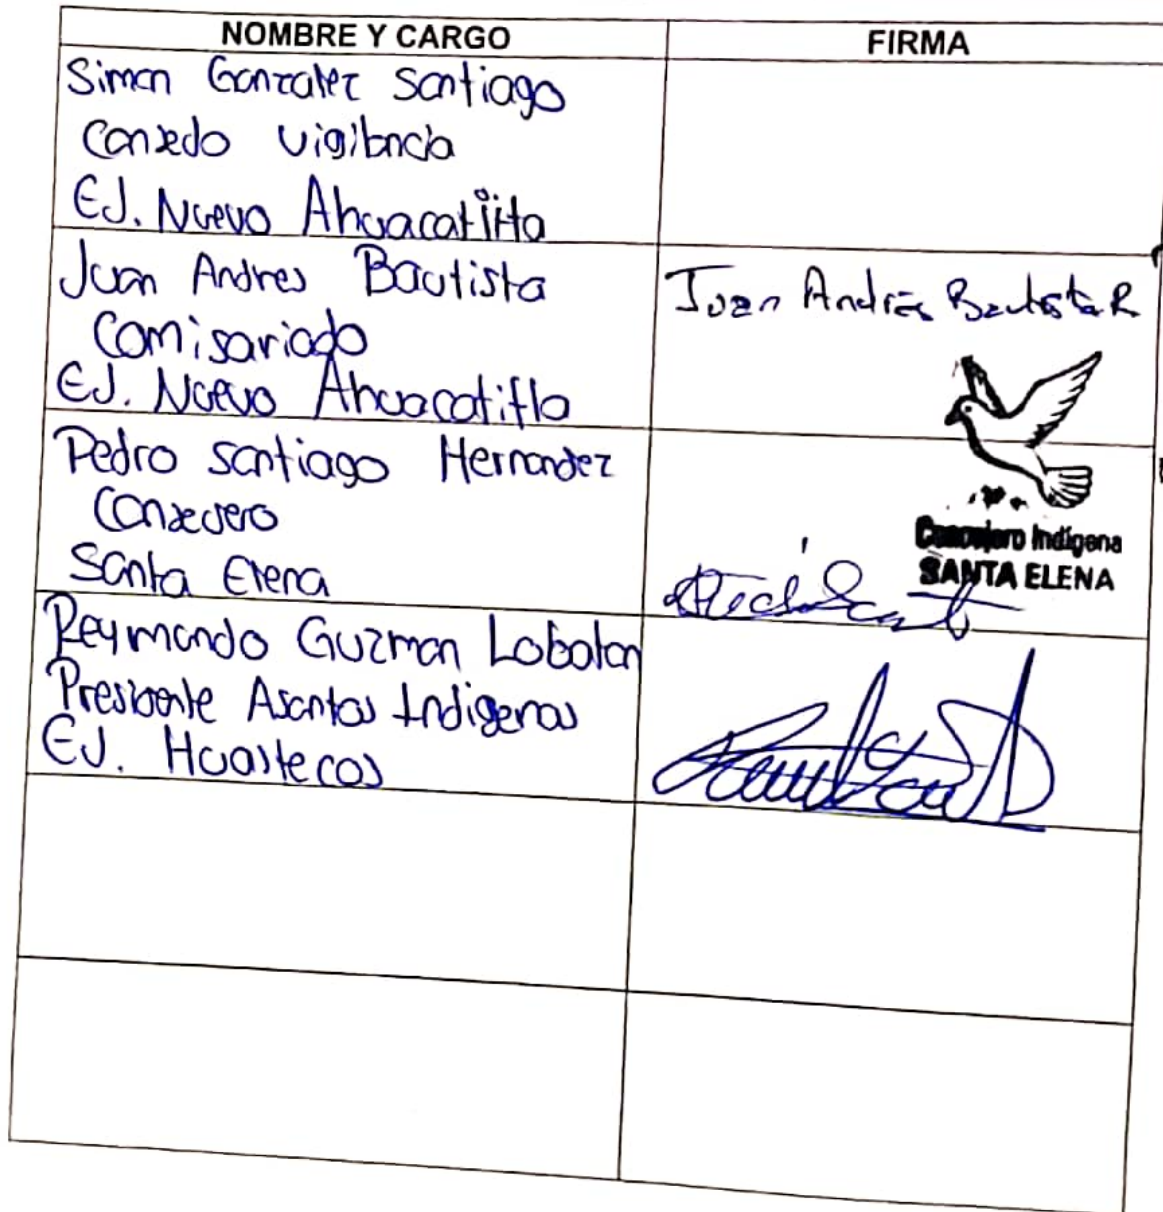 NOMBRE Y CARGO
FIRMA
Simon Gonzalez Santiago
Consedo vigilancia
EJ. Nuevo Ahuacatitla
Juan Andres Bautista
Comisariado
EJ. Nuevo Ahuacatitla
Juan Andrés Bautista R
Pedro Santiago Hernandez
Consejero
Santa Elena
Consejero Indígena
SANTA ELENA
Reymondo Guzman Lobaton
Presidente Asantos Indigenas
EJ. Huastecos